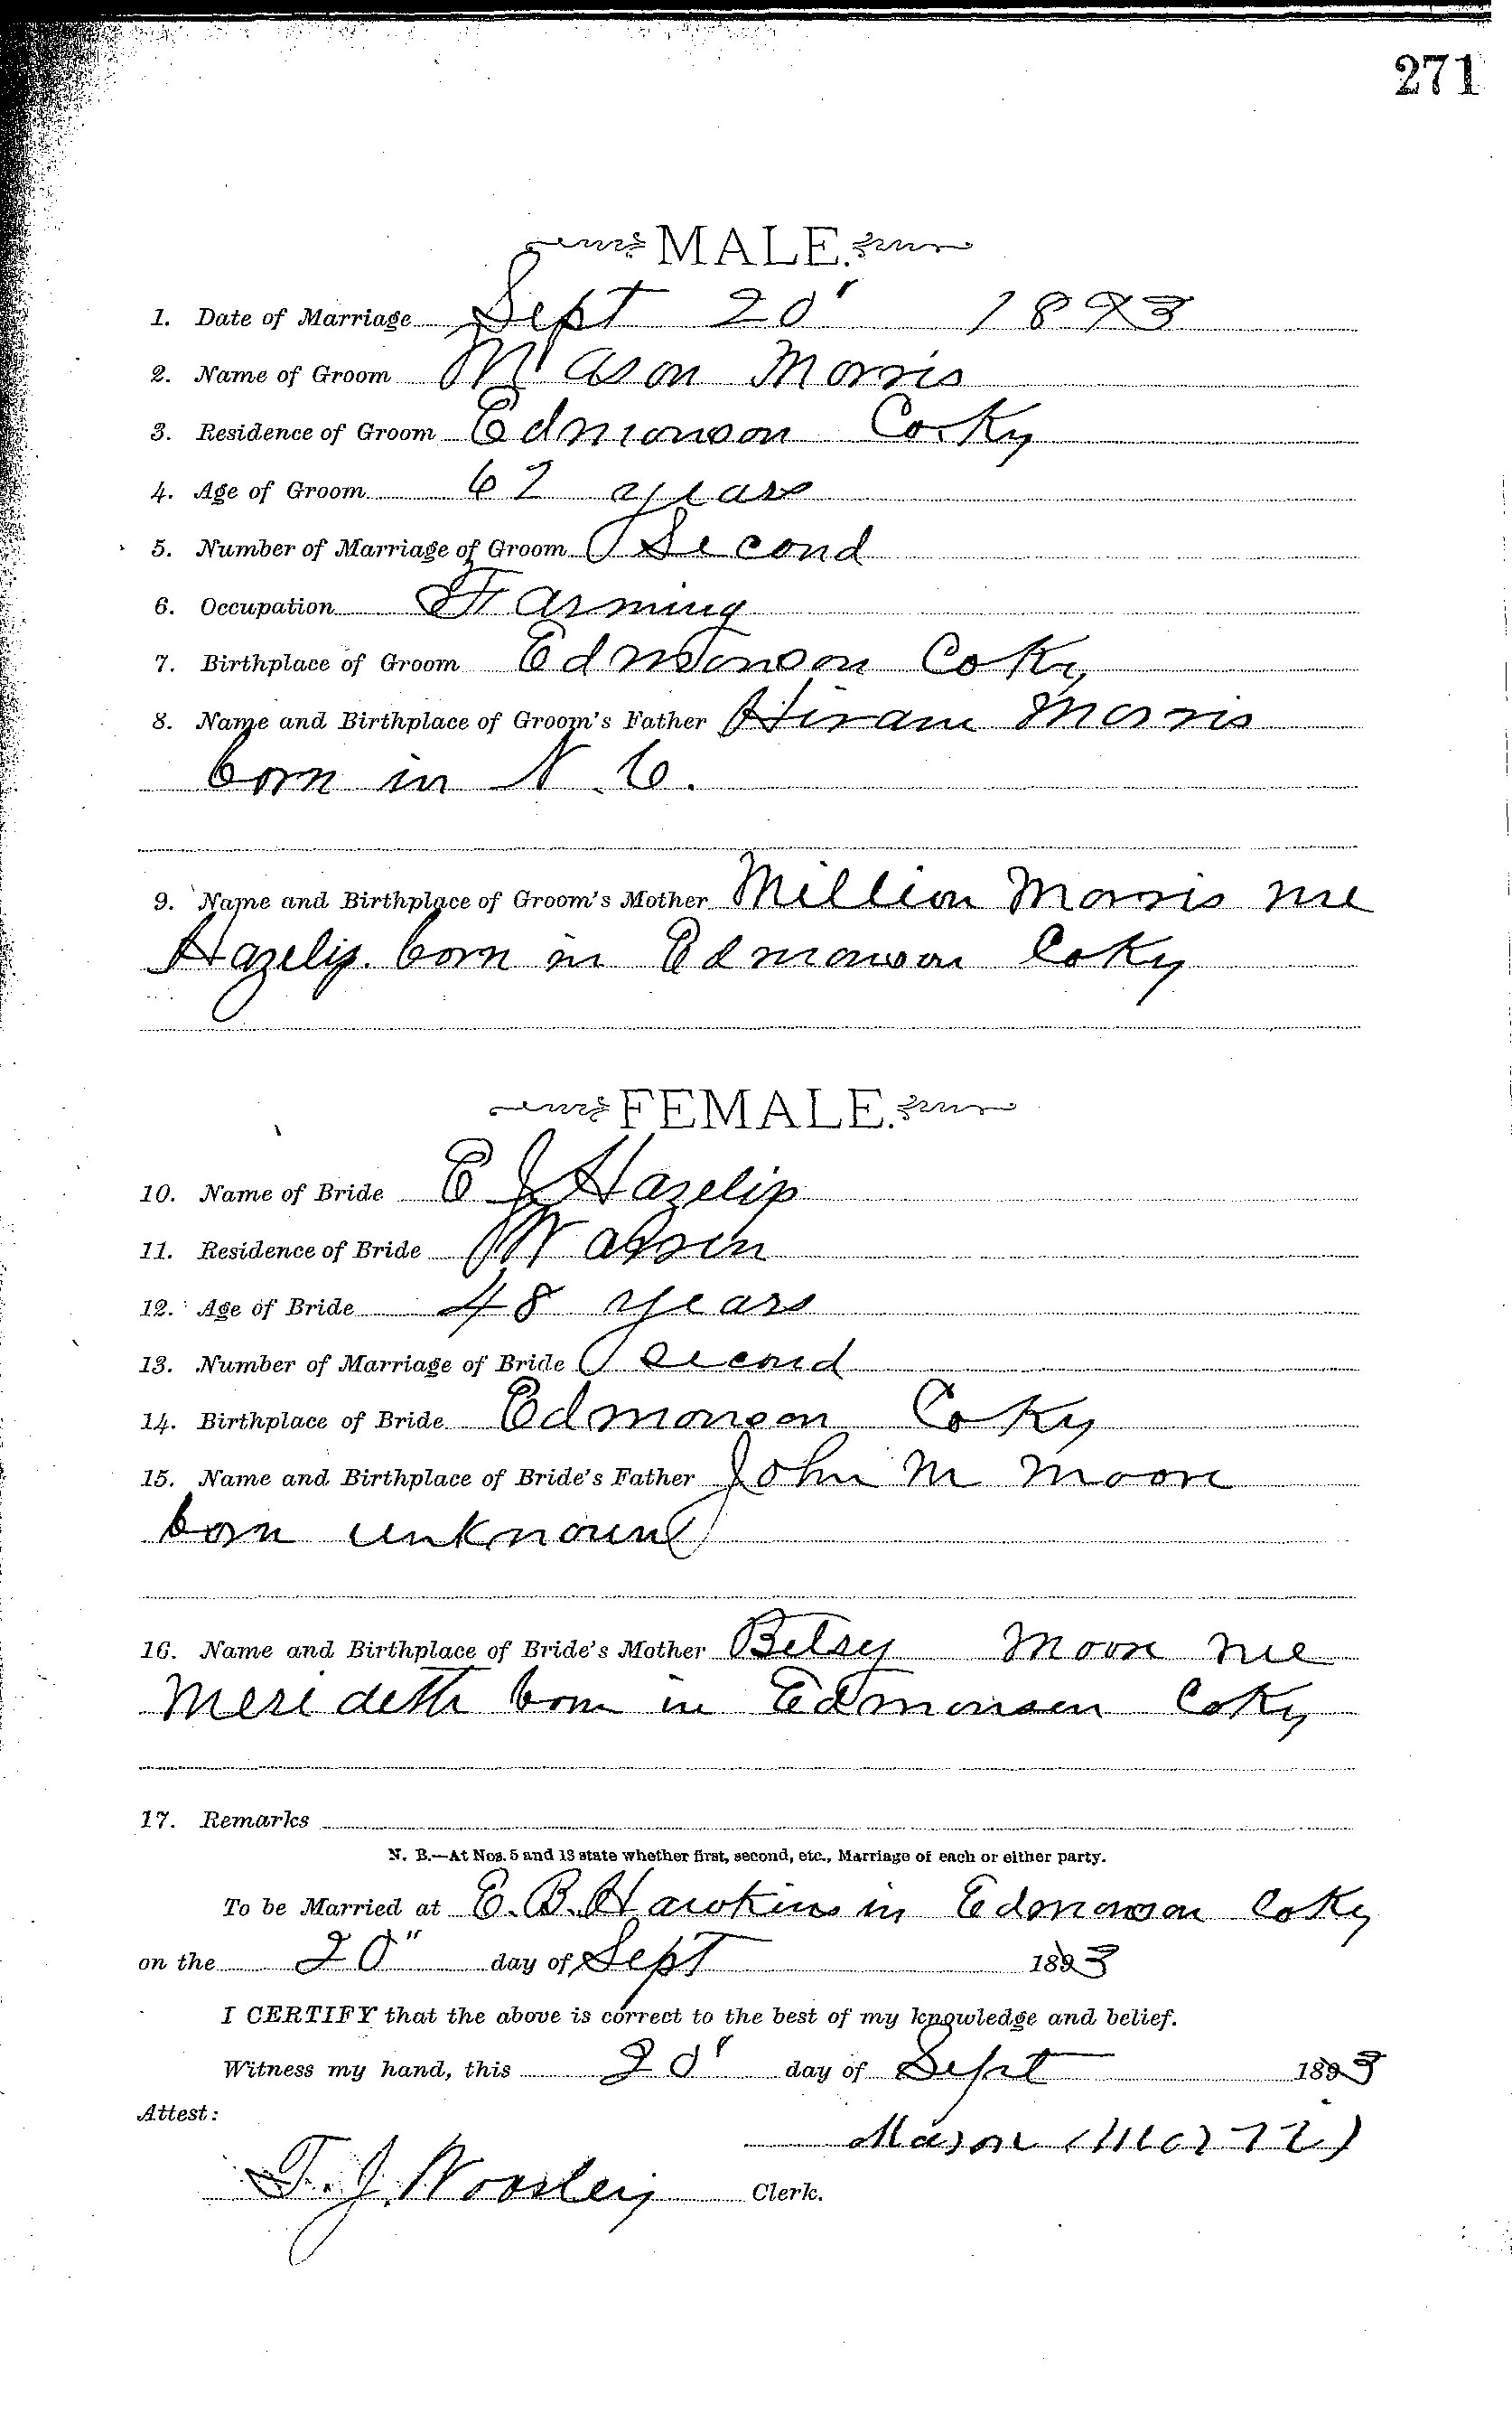 271
MALE.
1. Date of Marriage Sept 20" 1893
2. Name of Groom Mason Morris
3. Residence of Groom Edmonson Co. Ky
4. Age of Groom 62 years
5. Number of Marriage of Groom Second
6. Occupation Farming
7. Birthplace of Groom Edmonson Co Ky
8. Name and Birthplace of Groom's Father Hiram Morris
born in N. C.
9. Name and Birthplace of Groom's Mother Million Morris nee
Hazelip. born in Edmonson Co Ky
FEMALE.
10. Name of Bride E J Hazelip
11. Residence of Bride
12. Age of Bride 48 years
13. Number of Marriage of Bride second
14. Birthplace of Bride Edmonson Co Ky
15. Name and Birthplace of Bride's Father John M Moore
born unknown
16. Name and Birthplace of Bride's Mother Betsey Moore nee
Merideth born in Edmonson Co Ky
17. Remarks
N. B.—At Nos. 5 and 13 state whether first, second, etc., Marriage of each or either party.
To be Married at E. B. Hawkins in Edmonson Co Ky
on the 20" day of Sept 1893
I CERTIFY that the above is correct to the best of my knowledge and belief.
Witness my hand, this 20" day of Sept 1893
Attest:
Mason Morris
T. J. Woosley Clerk.